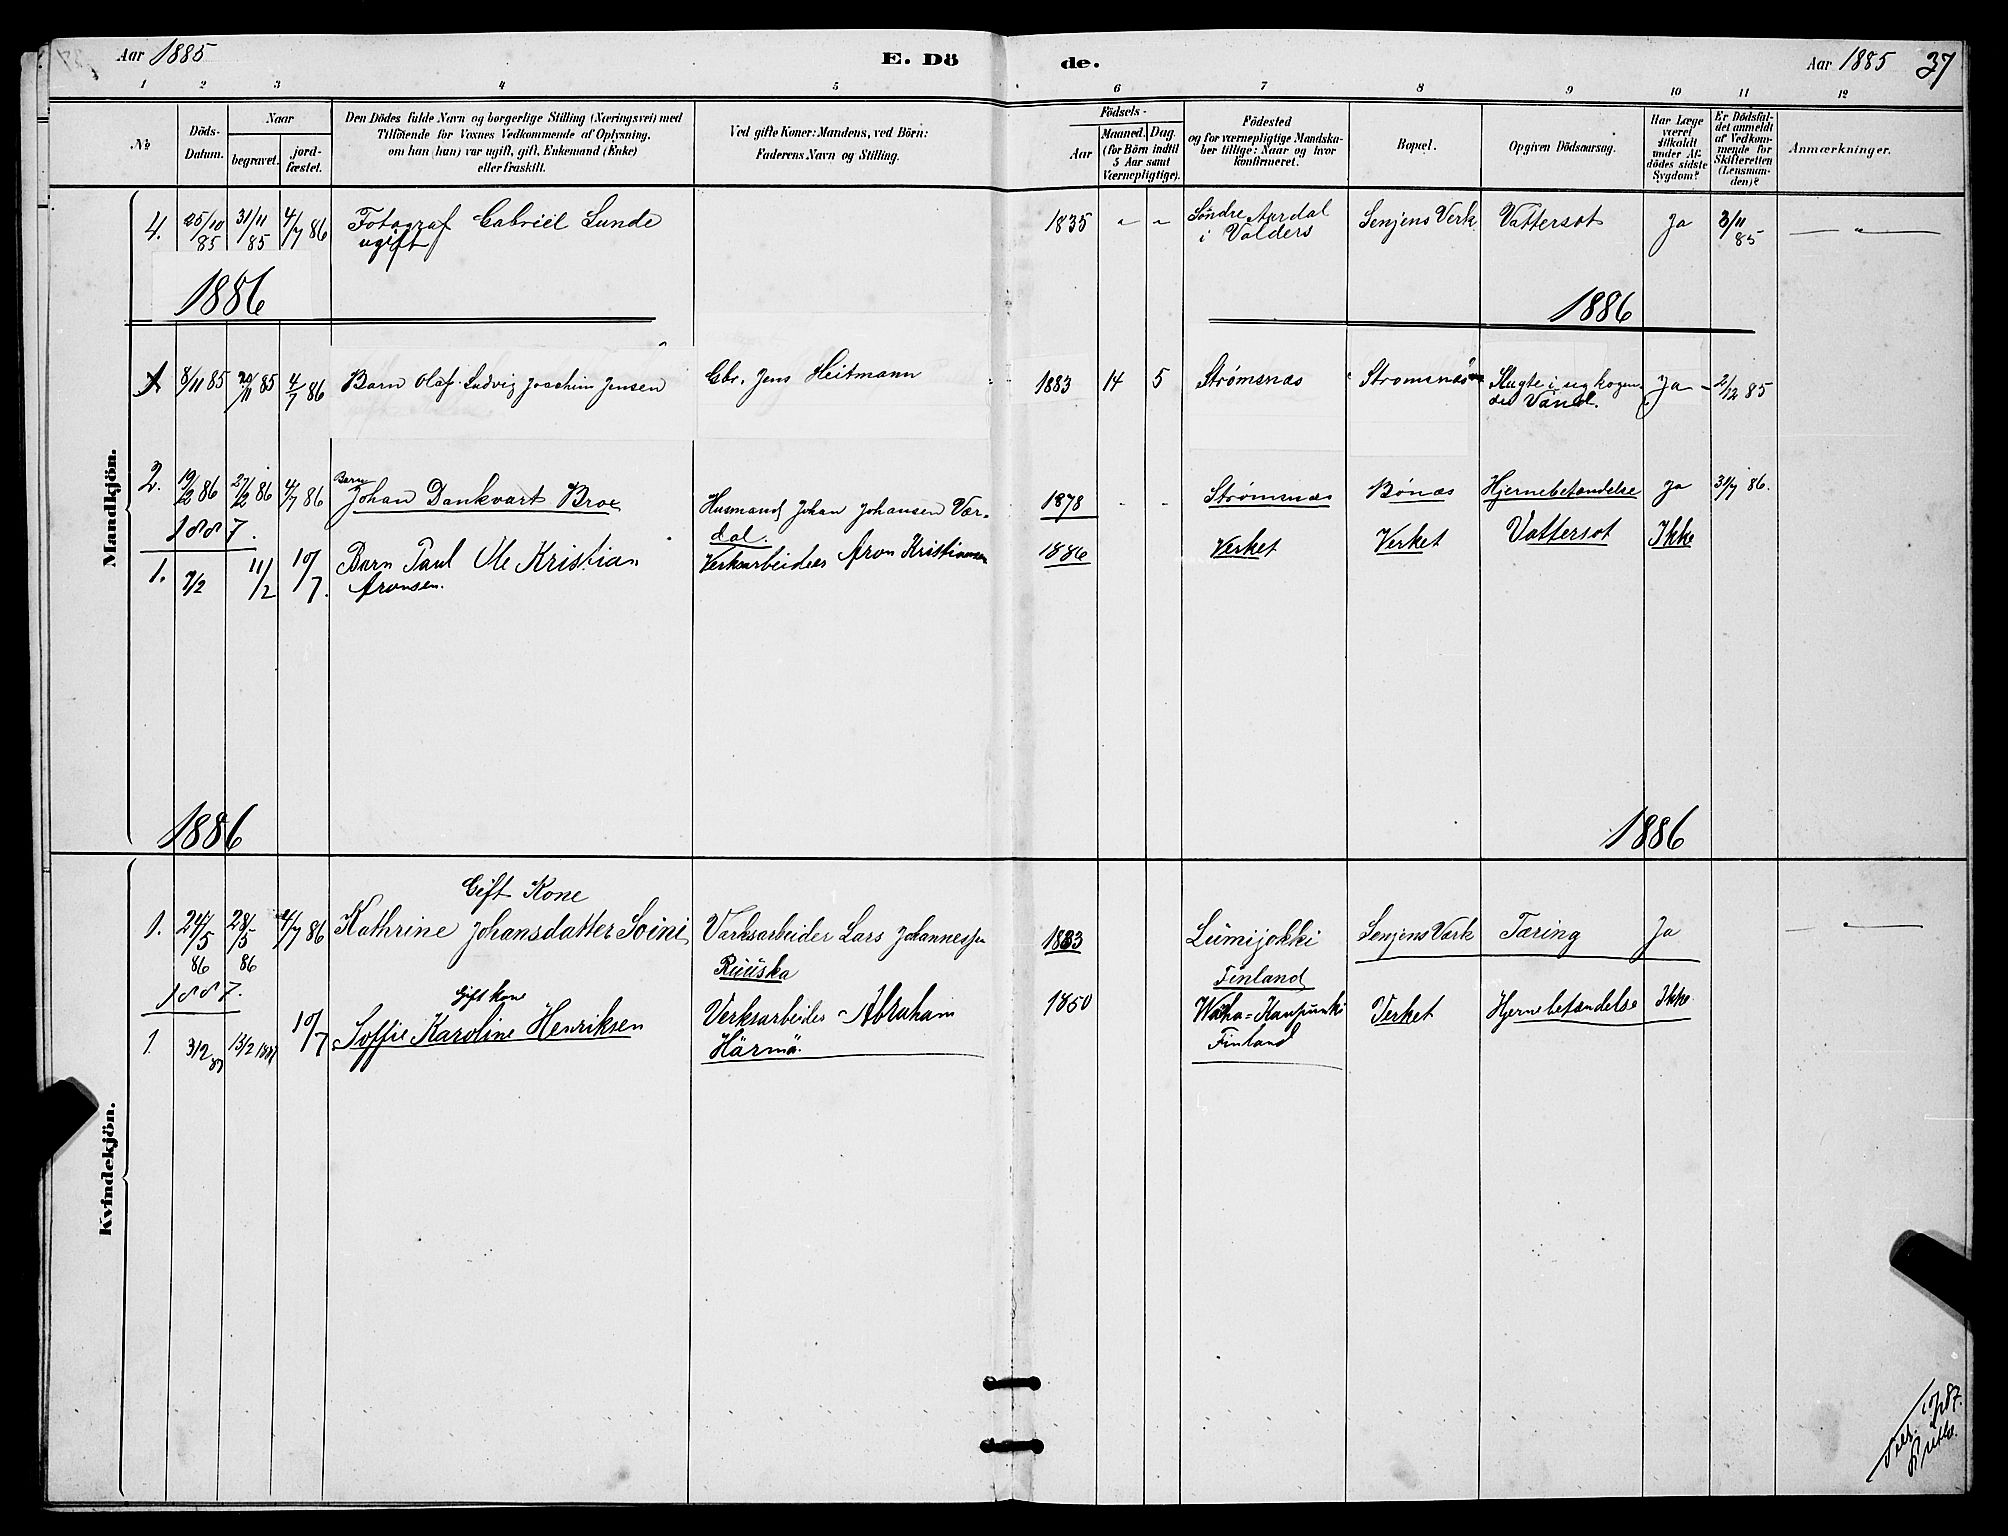 Aar 1885
E. Dö
de.
Aar 1885 37
1 2 3 4 5 6 7 8 9 10 11 12
№
Döds-
Datum.
Naar
begravet.
jord-
fæstet.
Den Dödes fulde Navn og borgerlige Stilling (Næringsvei) med
Tilföiende for Voxnes Vedkommende af Oplysning,
om han (hun) var ugift, gift, Enkemand (Enke)
eller fraskilt.
Ved gifte Koner: Mandens, ved Börn:
Faderens Navn og Stilling.
Födsels-
Aar
Maaned. Dag.
(for Börn indtil
5 Aar samt
Værnepligtige).
Födested
og for værnepligtige Mandska-
ber tillige: Naar og hvor
konfirmeret.
Bopæl.
Opgiven Dödsaarsag.
Har Læge
været
tilkaldt
under Af-
dödes sidste
Sygdom?
Er Dödsfal-
det anmeldt
af Vedkom-
mende for
Skifteretten
(Lensman-
den)?
Anmærkninger.
Mandkjön.
4. 25/10 85 31/11 85 4/7 86 Fotograf Gabriel Lunde 1835 " " Söndre Aurdal Senjens Verk Vattersot Ja 3/11 85 "
ugift i Valders
1886 1886
1 8/11 85 20/11 85 4/7 86 Barn Olaf Ludvig Joachim Jensen Gbr. Jens Heitmann 1883 14 5 Strømsnas Strømsnas Slugte i sig kogen- Ja 2/12 85
de Vand.
2. 19/2 86 27/2 86 4/7 86 Barn
Johan Dankvart Broe Husmand Johan Johansen Vær- 1878 - - Strømsnæs Bønæs Hjernebetændelse Ja 31/7 86.
dal.
1887.
1. 7/2 11/2 10/7. Barn Paul Ole Kristian Verksarbeider Aron Kristiansen 1886 Verket Verket Vattersot Ikke
Aronsen.
1886 1886
Kvindekjön.
Gift Kone
1. 24/5 86 28/5 86 4/7 86 Kathrine Johansdatter Soini Varksarbeider Lars Johannessen 1833 Lumijokki Senjens Værk Tæring Ja "
Ruuska Finland
1887.
Gift kone
1. 3/2 87 13/2 1887 10/7 Soffie Karoline Henriksen Verksarbeider Abraham 1850 Waha=Kaupunki Verket Hjernebetændelse Ikke
Härmä. Finland